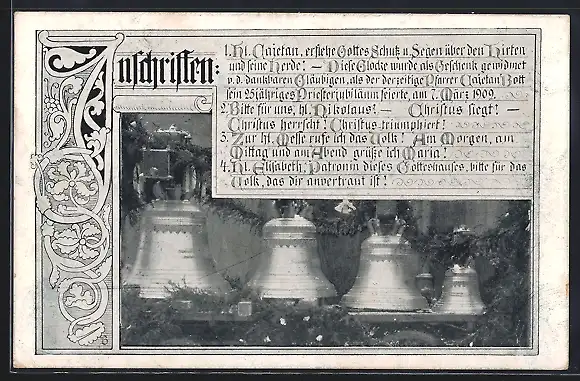 Inschriften:
1. Hl. Cajetan, erflehe Gottes Schutz u. Segen über den Hirten
und seine Herde! — Diese Glocke wurde als Geschenk gewidmet
v. d. dankbaren Gläubigen, als der derzeitige Pfarrer Cajetan Zott
sein 25jähriges Priesterjubiläum feierte, am 7. März 1909.
2. Bitte für uns, hl. Nikolaus! — Christus siegt! —
Christus herrscht! Christus triumphiert!
3. Zur hl. Messe rufe ich das Volk! Am Morgen, am
Mittag und am Abend grüße ich Maria!
4. Hl. Elisabeth, Patronin dieses Gotteshauses, bitte für das
Volk, das dir anvertraut ist!